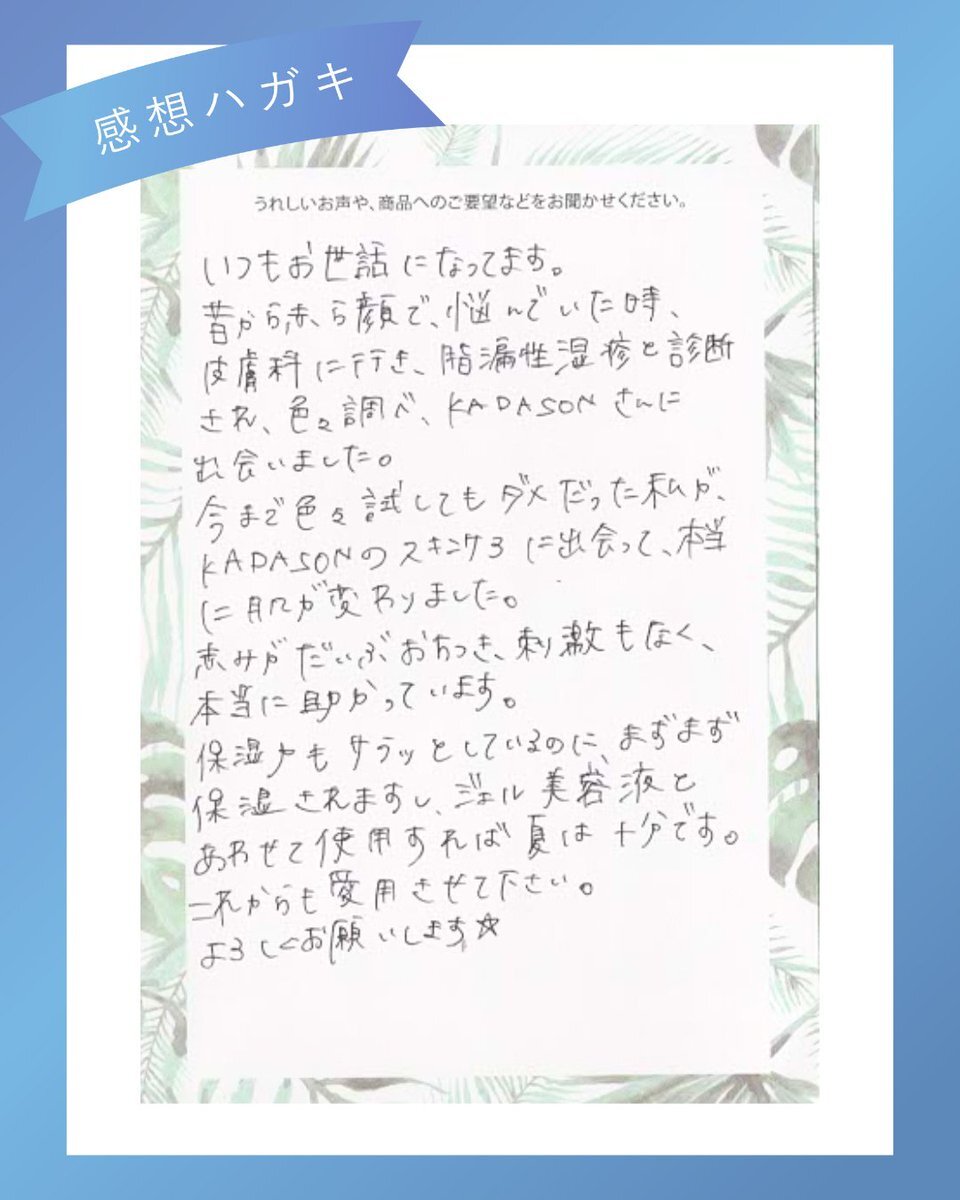 感想ハガキ
うれしいお声や、商品へのご要望などをお聞かせください。
いつもお世話になってます。
昔から赤ら顔で、悩んでいた時、
皮膚科に行き、脂漏性湿疹と診断
され、色々調べ、KADASONさんに
出会いました。
今まで色々試してもダメだった私が、
KADASONのスキンケアに出会って、本当
に肌が変わりました。
赤みがだいぶおちつき、刺激もなく、
本当に助かっています。
保湿力もサラッとしているのに、まずまず
保湿されますし、ジェル美容液と
あわせて使用すれば夏は十分です。
これからも愛用させて下さい。
よろしくお願いします☆